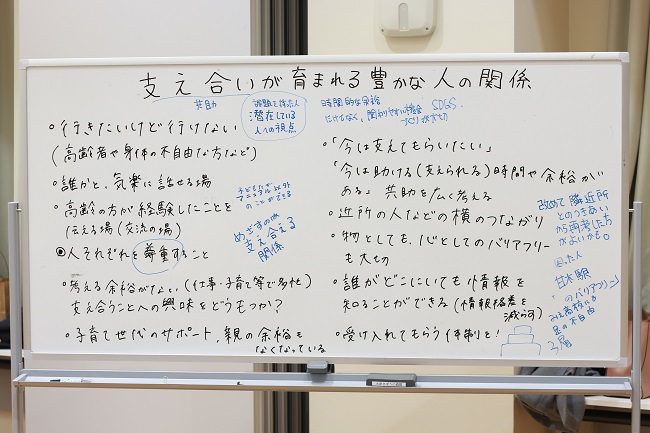 支え合いが育まれる豊かな人の関係
共助
課題を持った人
潜在している
人への視点
時間的な余裕
だけでなく、関わりやすい機会
づくりが大切
SDGS
・行きたいけど行けない
(高齢者や身体の不自由な方など)
・誰かと、気楽に話せる場
・高齢の方が経験したことを
伝える場(交流の場)
◉人それぞれを尊重すること
・考える余裕がない(仕事・子育て等で多忙)
支え合うことへの興味をどうもつか?
・子育て世代のサポート、親の余裕も
なくなっている
子どもたちが
マニュアル以外
のことができる
めざすのは
支え合える
関係
・「今は支えてもらいたい」
「今は助ける(支えられる)時間や余裕が
ある」 共助を広く考える
・近所の人などの横のつながり
・物としても、心としてのバリアフリー
も大切
・誰がどこにいても情報を
知ることができる(情報格差を
減らす)
・受け入れてもらう体制を!
改めて隣近所
とのつきあい
から再考した方
がよいかも。
困った人
甘木駅
のバリアフリー
足の不自由
3層